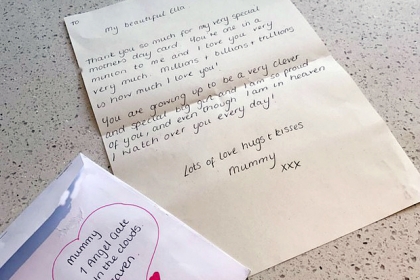 To
My beautiful Ella
Thank you so much for my very special
mothers day card. You're one in a
million to me and I love you very
very much. Millions + billions + trillions
is how much I love you!
You are growing up to be a very clever
and special big girl and I am so proud
of you, and even though I am in heaven
I watch over you every day!
Lots of love hugs + kisses
Mummy xxx
Mummy
1 Angel Gate
In the clouds
Heaven